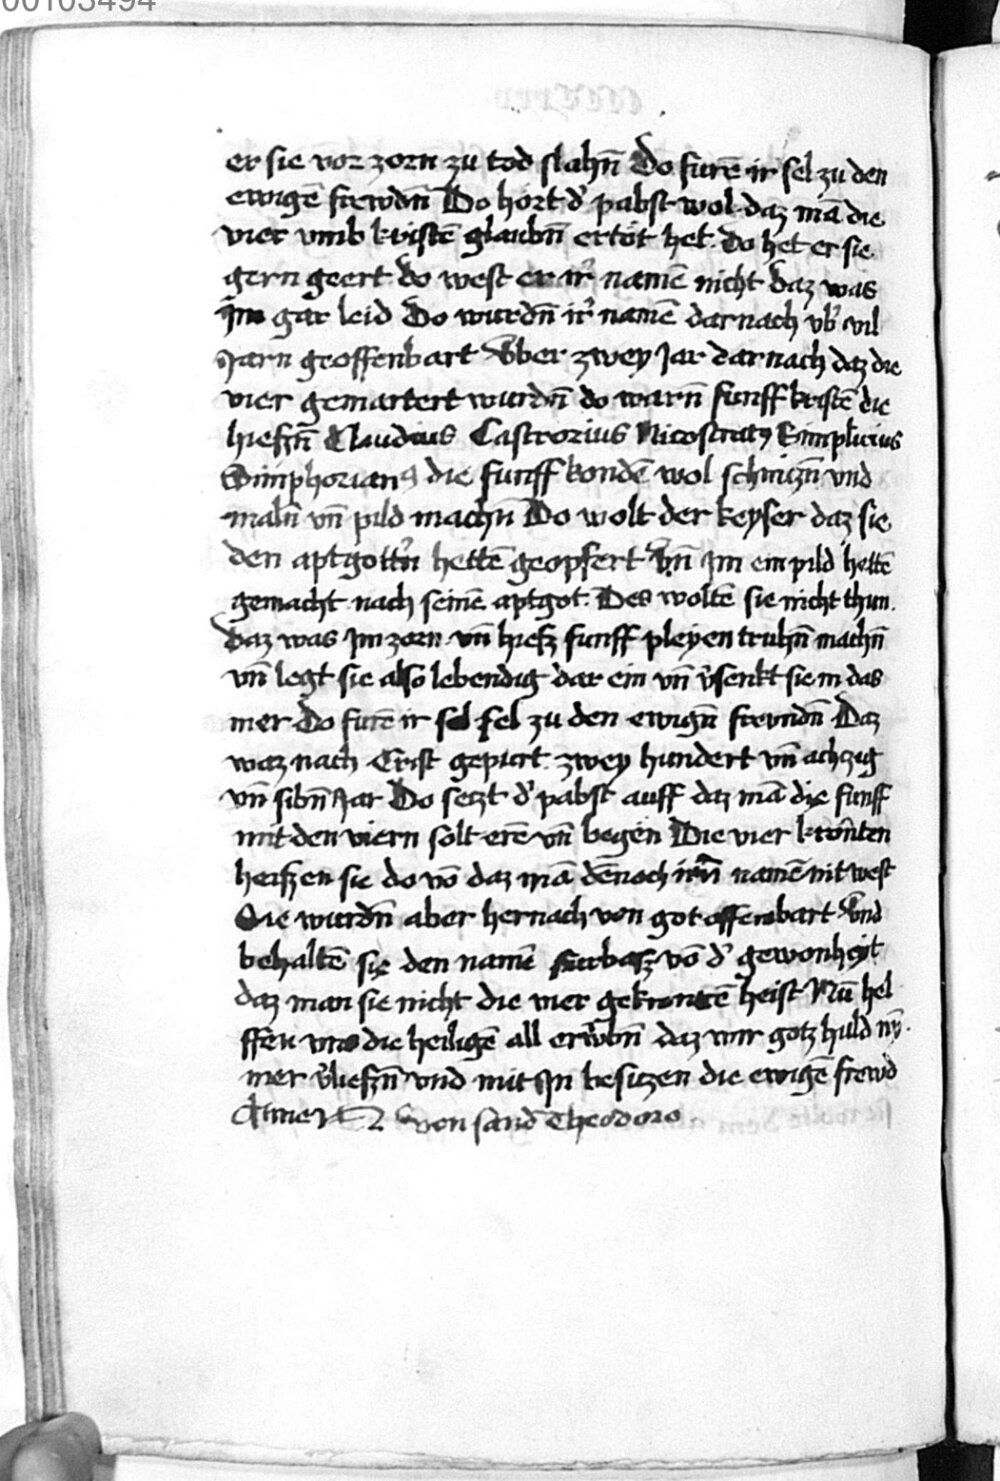 00103494
er sie vor zorn zu tod slahn̄ Do furē ir sel zu den
ewigē frewdn̄ Do hort d' pabst wol daz mā die
vier vmb kristē glaubn̄ ertöt het do het er sie
gern geert do west er ir' namē nicht daz was
Im gar leid Do wurdn̄ ir' namē darnach vb' vil
Jarn geoffenbart Vber zwey Jar darnach daz die
vier gemartert wurdn̄ do warn̄ funff kristē die
hieszn̄ Claudius Castrorius Nicostratꝯ Simplicius
Simphorianꝯ die funff kondē wol schnitzn̄ vnd
maln̄ vn̄ pild machn̄ Do wolt der keyser daz sie
den aptgottn̄ hettē geopfert Vn̄ Im ein pild hettē
gemacht nach seinē aptgot Des woltē sie nicht thun
Daz was Im zorn vn̄ hiesz funff pleyen truhn̄ machn̄
vn̄ legt sie also lebendig dar ein vn̄ v'senkt sie in das
mer Do furē ir sel sel zu den ewign̄ frewdn̄ Daz
waz nach Crist gepurt zwey hundert vn̄ achzig
vn̄ sibn̄ Jar Do setzt d' pabst auff daz mā die funff
mit den viern solt erē vn̄ begen Die vier krōnten
heiszen sie do vō daz mā dēnoch irn̄ namē nit west
Sie wurdn̄ aber hernach von got offenbart Vnd
behaltē sie den namē furbasz vō d' gewonheit
daz man sie nicht die vier gekrontē heist Nū hel
ffen vns die heiligē all erwbn̄ daz wir gotz huld ny̅
mer v'lieszn̄ vnd mit In besitzen die ewigē frewd
Amen Von sand Theodoro